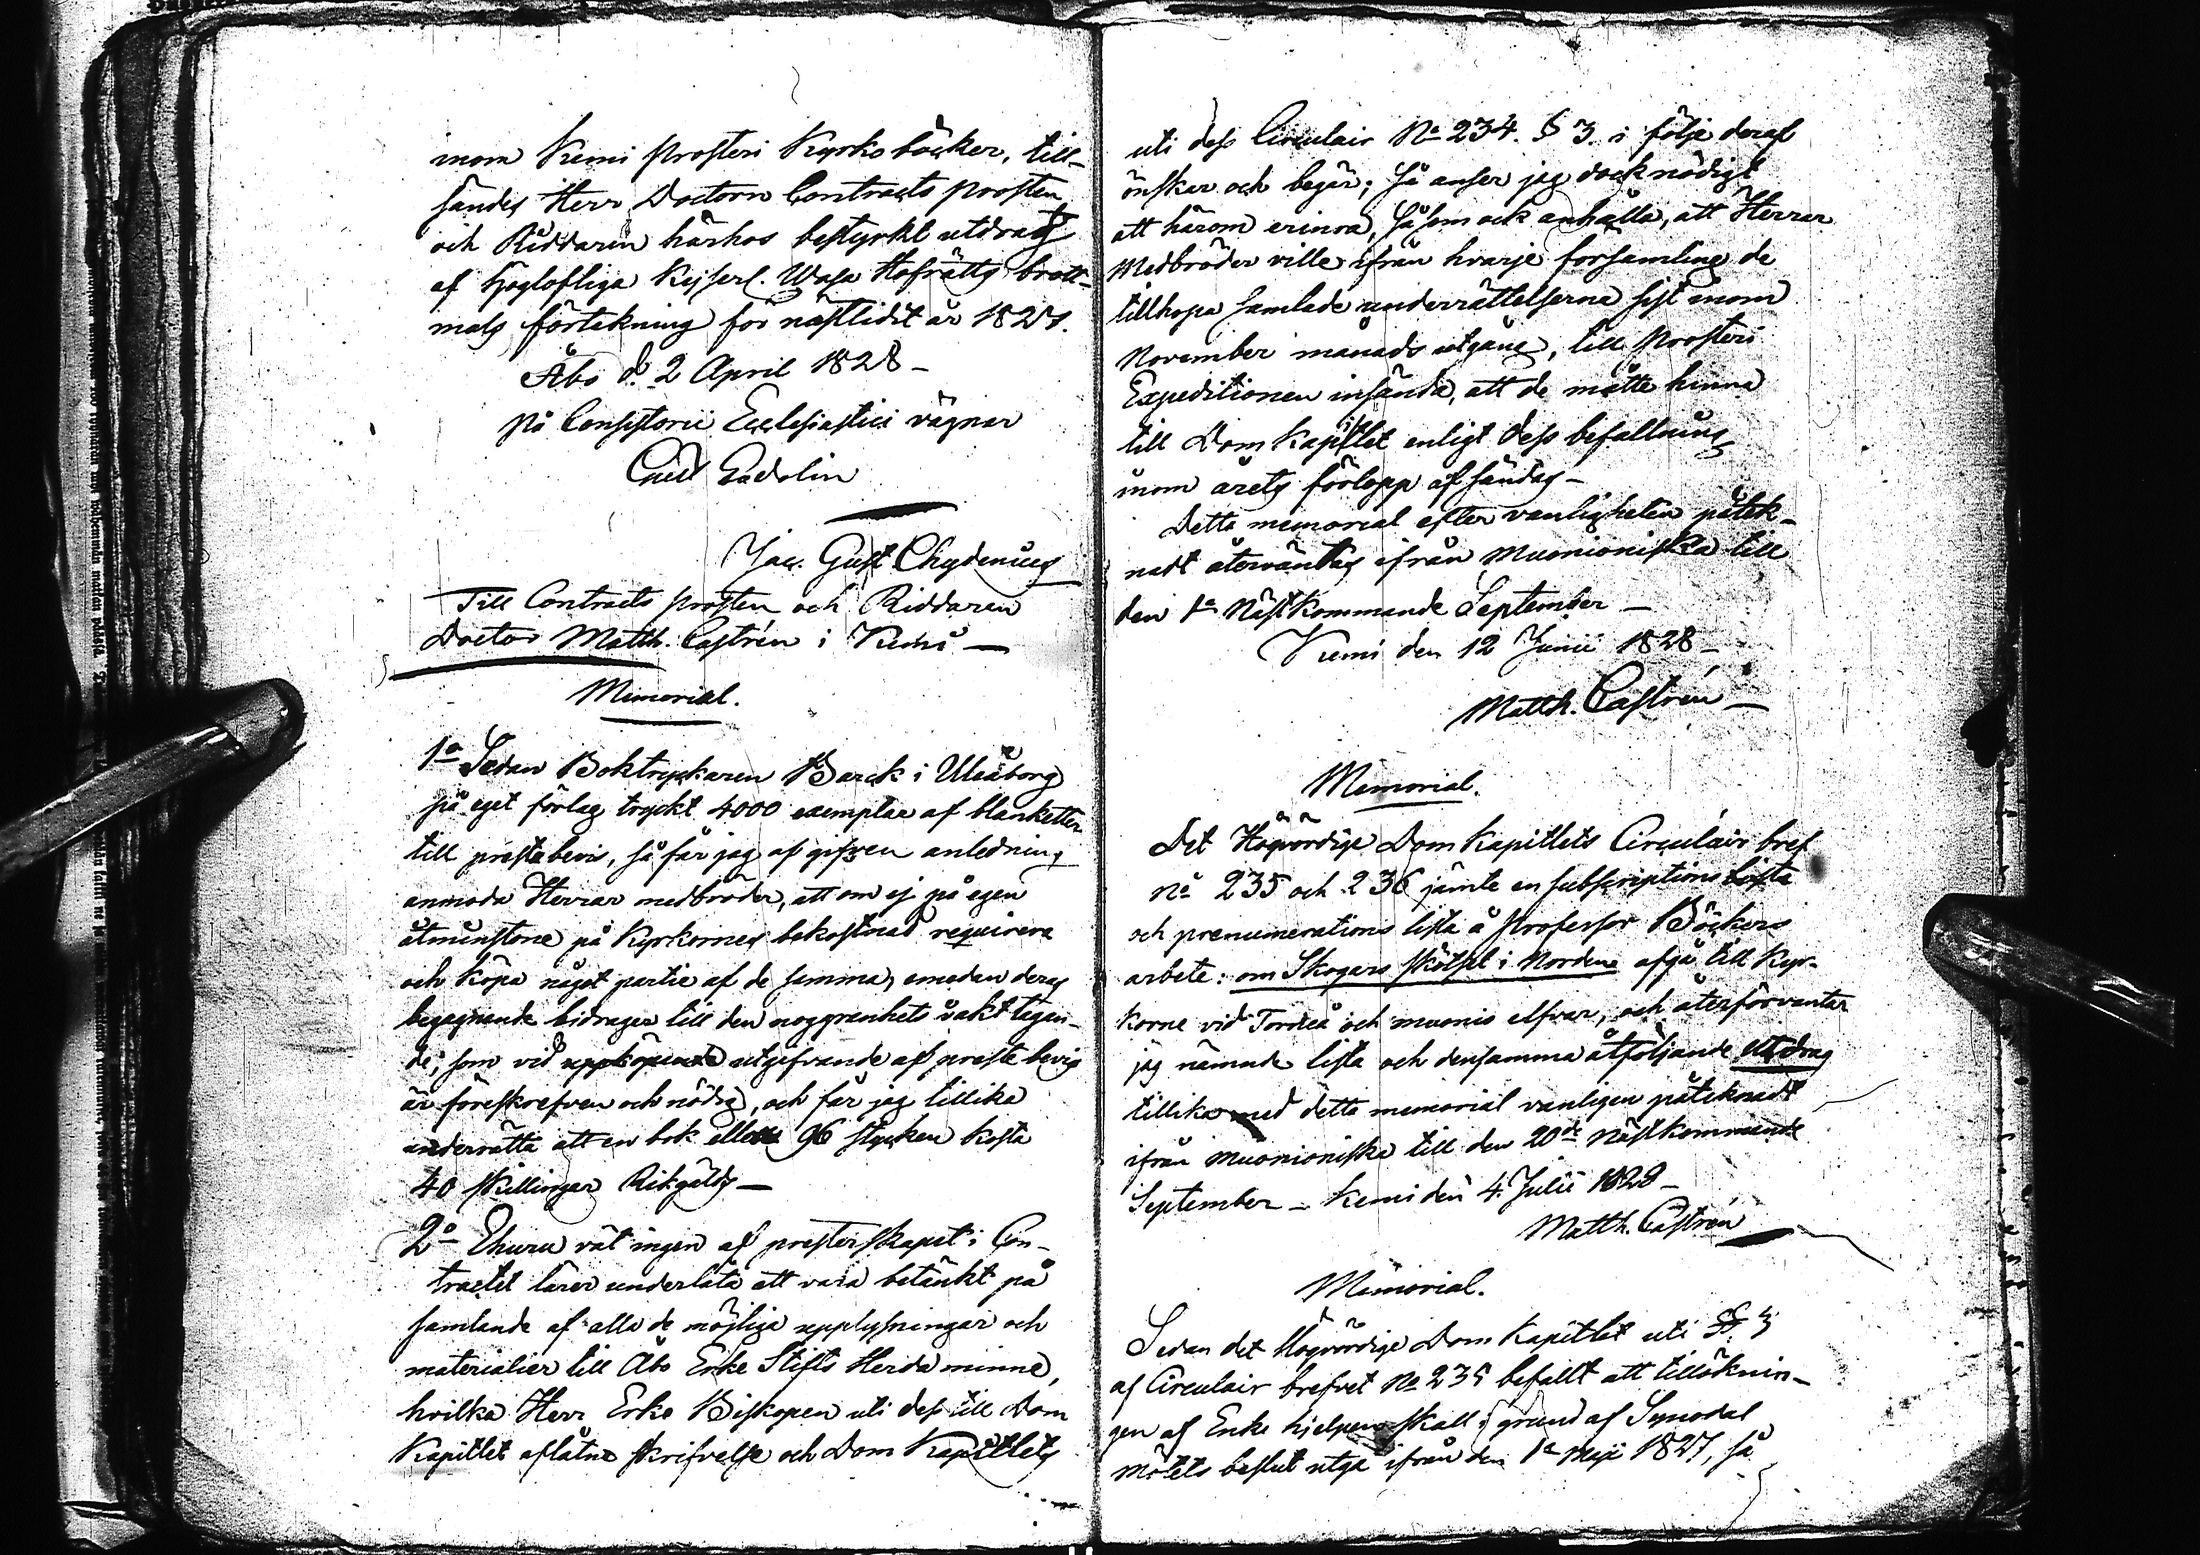 inom Kemi prosteri Kyrko böcker, till-
sändes Herr Doctorn Contracts prosten
och Riddaren härhos bestyrkt utdrag
af Höglofliga Kejserl. Wasa Hofrätts brott-
mals förtekning för nästlidit år 1827.
Åbo d. 2 April 1828 -
på Consistorii Ecclesiastici vägnar
Gust Gadolin
Jac. Gust Chydenius
Till Contracts prosten och Riddaren
Doctor Matth. Castrén i Kemi -
Memorial.
1o Sedan Boktryckaren Barck i Uleåborg
på eget förlag tryckt 4000 exemplar af blanketter
till prestabevis, så får jag af gifven anledning
anmoda Herrar medbröder, att om ej på egen
åtminstone på Kyrkornes bekostnad requirera
och köpa något partie af de samma, emedan deras
begagnande bidrager till den noggranhets vaktagan-
de, som vid uppköpande utgifvande af preste bevis
är föreskrefven och nödig, och får jag tillika
underrätta att en bok eller 96 stycken kosta
40 skillingar Rikgälds -
2o Ehuru väl ingen af presterskapet i Con-
tractet lärer underlåta att vara betänkt på
samlande af alla de möjliga upplysningar och
materialier till Åbo Erke Stifts Herda minne,
hvilka Herr Erke Biskopen uti dess till Dom
Kapitlet aflåtne skrifvelse och Dom Kapitlets
uti dess Circulair No 234. § 3. i följe deraf
önskar och begär; så anser jag dock nödigt
att härom erinra, så som ock anhålla, att Herrar
Medbröder ville ifrån hvarje församling de
tillhopa samlade underrättelserna sist inom
November månads utgång, till Prosteri
Expeditionen insända, att de måtte hinna
till Dom Kapitlet enligt dess befallning
inom årets förlopp afsändas -
Detta memorial efter vanligheten påtek-
nadt återväntas ifrån Muonioniska till
den 1a Nästkommande September -
Kemi den 12 Junii 1828 -
Matth. Castrén -
Memorial.
Det Högvördige Dom Kapitlets Circulair bref
No 235 och 236 jämte en subscriptions lista
och prenumerations lista å Professor Böckers
arbete: om Skogars skötsel i Norden afgå till Kyr-
korne vid Torneå och muonio elfvar, och återförväntar
jag nämnde lista och densamma åtföljande utdrag
tillika med detta memorial vanligen påteknadt
ifrån Muonioniska till den 20de Nästkommande
September - Kemi den 4. Julii 1828 -
Matth. Castrén
Memorial.
Sedan det Högvördige Dom Kapitlet uti § 3
af Circulair brefvet No 235 befallt att tilläknin-
gen af Enke hjelpen skall i grund af Synodal
Mötets beslut utgå ifrån den 1a Maji 1827, så